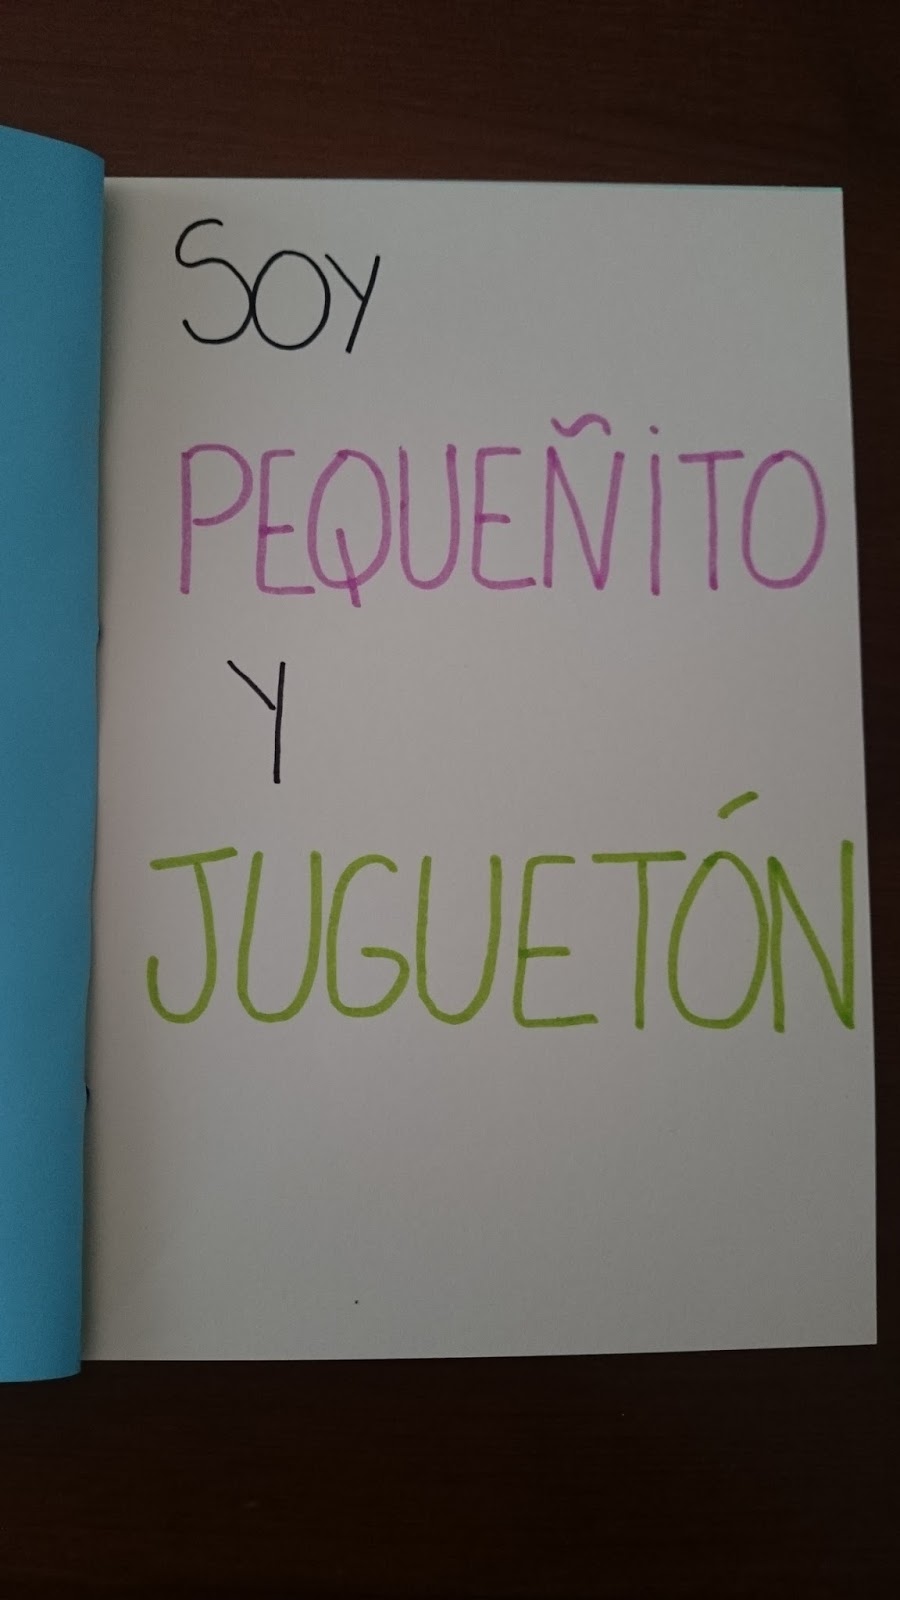 SOY
PEQUEÑITO
Y
JUGUETÓN